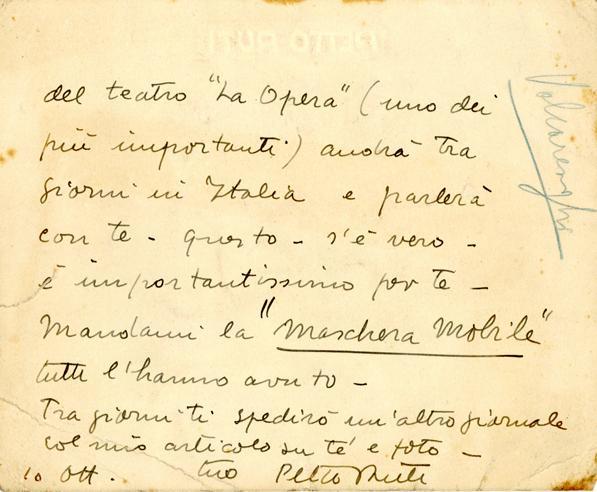 del teatro "La Opera" (uno dei
più importanti) andrà tra
giorni in Italia e parlerà
con te - questo - s'è vero -
è importantissimo per te -
Mandami la "Maschera Mobile"
tutti l'hanno avuto -
Tra giorni ti spedirò un'altro giornale
col mio articolo su te e foto -
10 Ott. tuo Petto Ruti
Volcarenghi